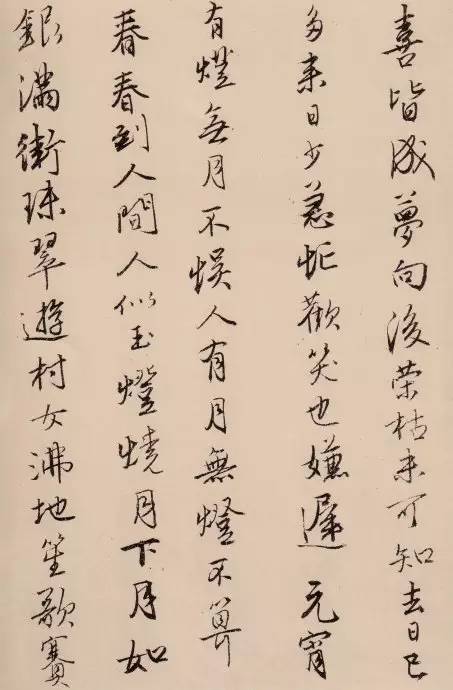 喜皆成夢向後荣枯未可知去日已
多来日少急忙歡笑也嫌遲元宵
有燈無月不悞人有月無燈不算
春春到人間人似玉燈燒月下月如
銀滿街珠翠遊村女沸地笙歌賽